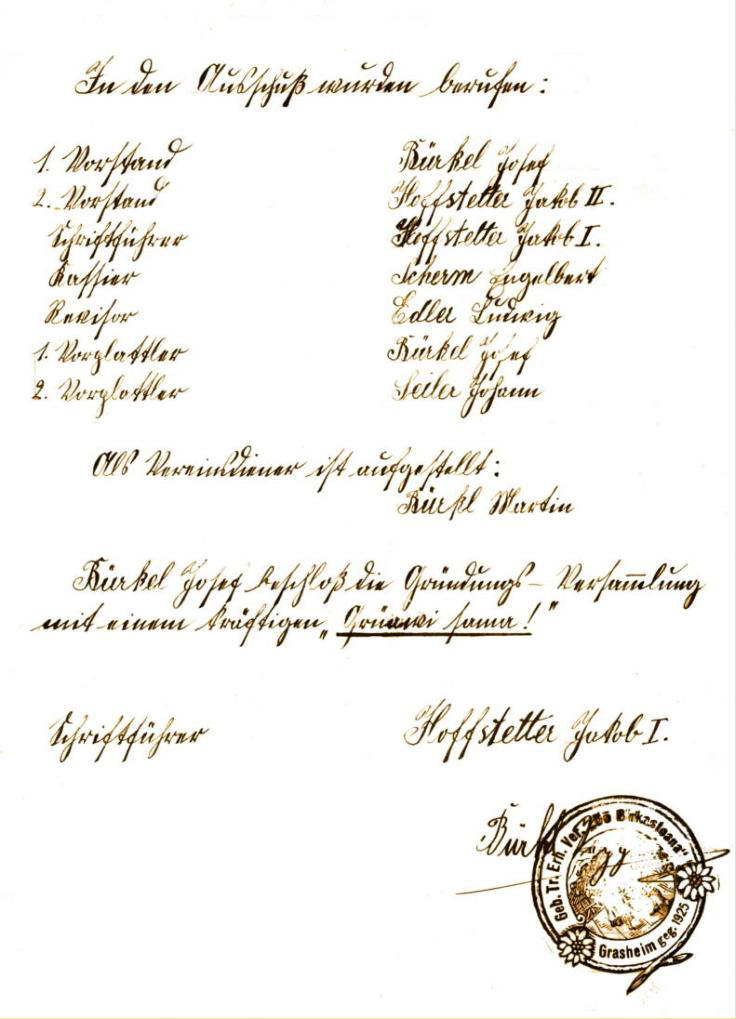 In den Ausschuß wurden berufen:
1. Vorstand Bürkel Josef
2. Vorstand Hoffstetter Jakob II.
Schriftführer Hoffstetter Jakob I.
Kassier Scherm Engelbert
Revisor Edler Ludwig
1. Vorplattler Bürkel Josef
2. Vorplattler Seiler Johann
Als Vereinsdiener ist aufgestellt:
Bürkl Martin
Bürkel Josef beschloß die Gründungs-Versam̅lung
mit einem kräftigen „Grüawi sama!"
Schriftführer Hoffstetter Jakob I.
Geb. Tr. Erh. Ver. Birkastoana"
Grasheim geg. 1925